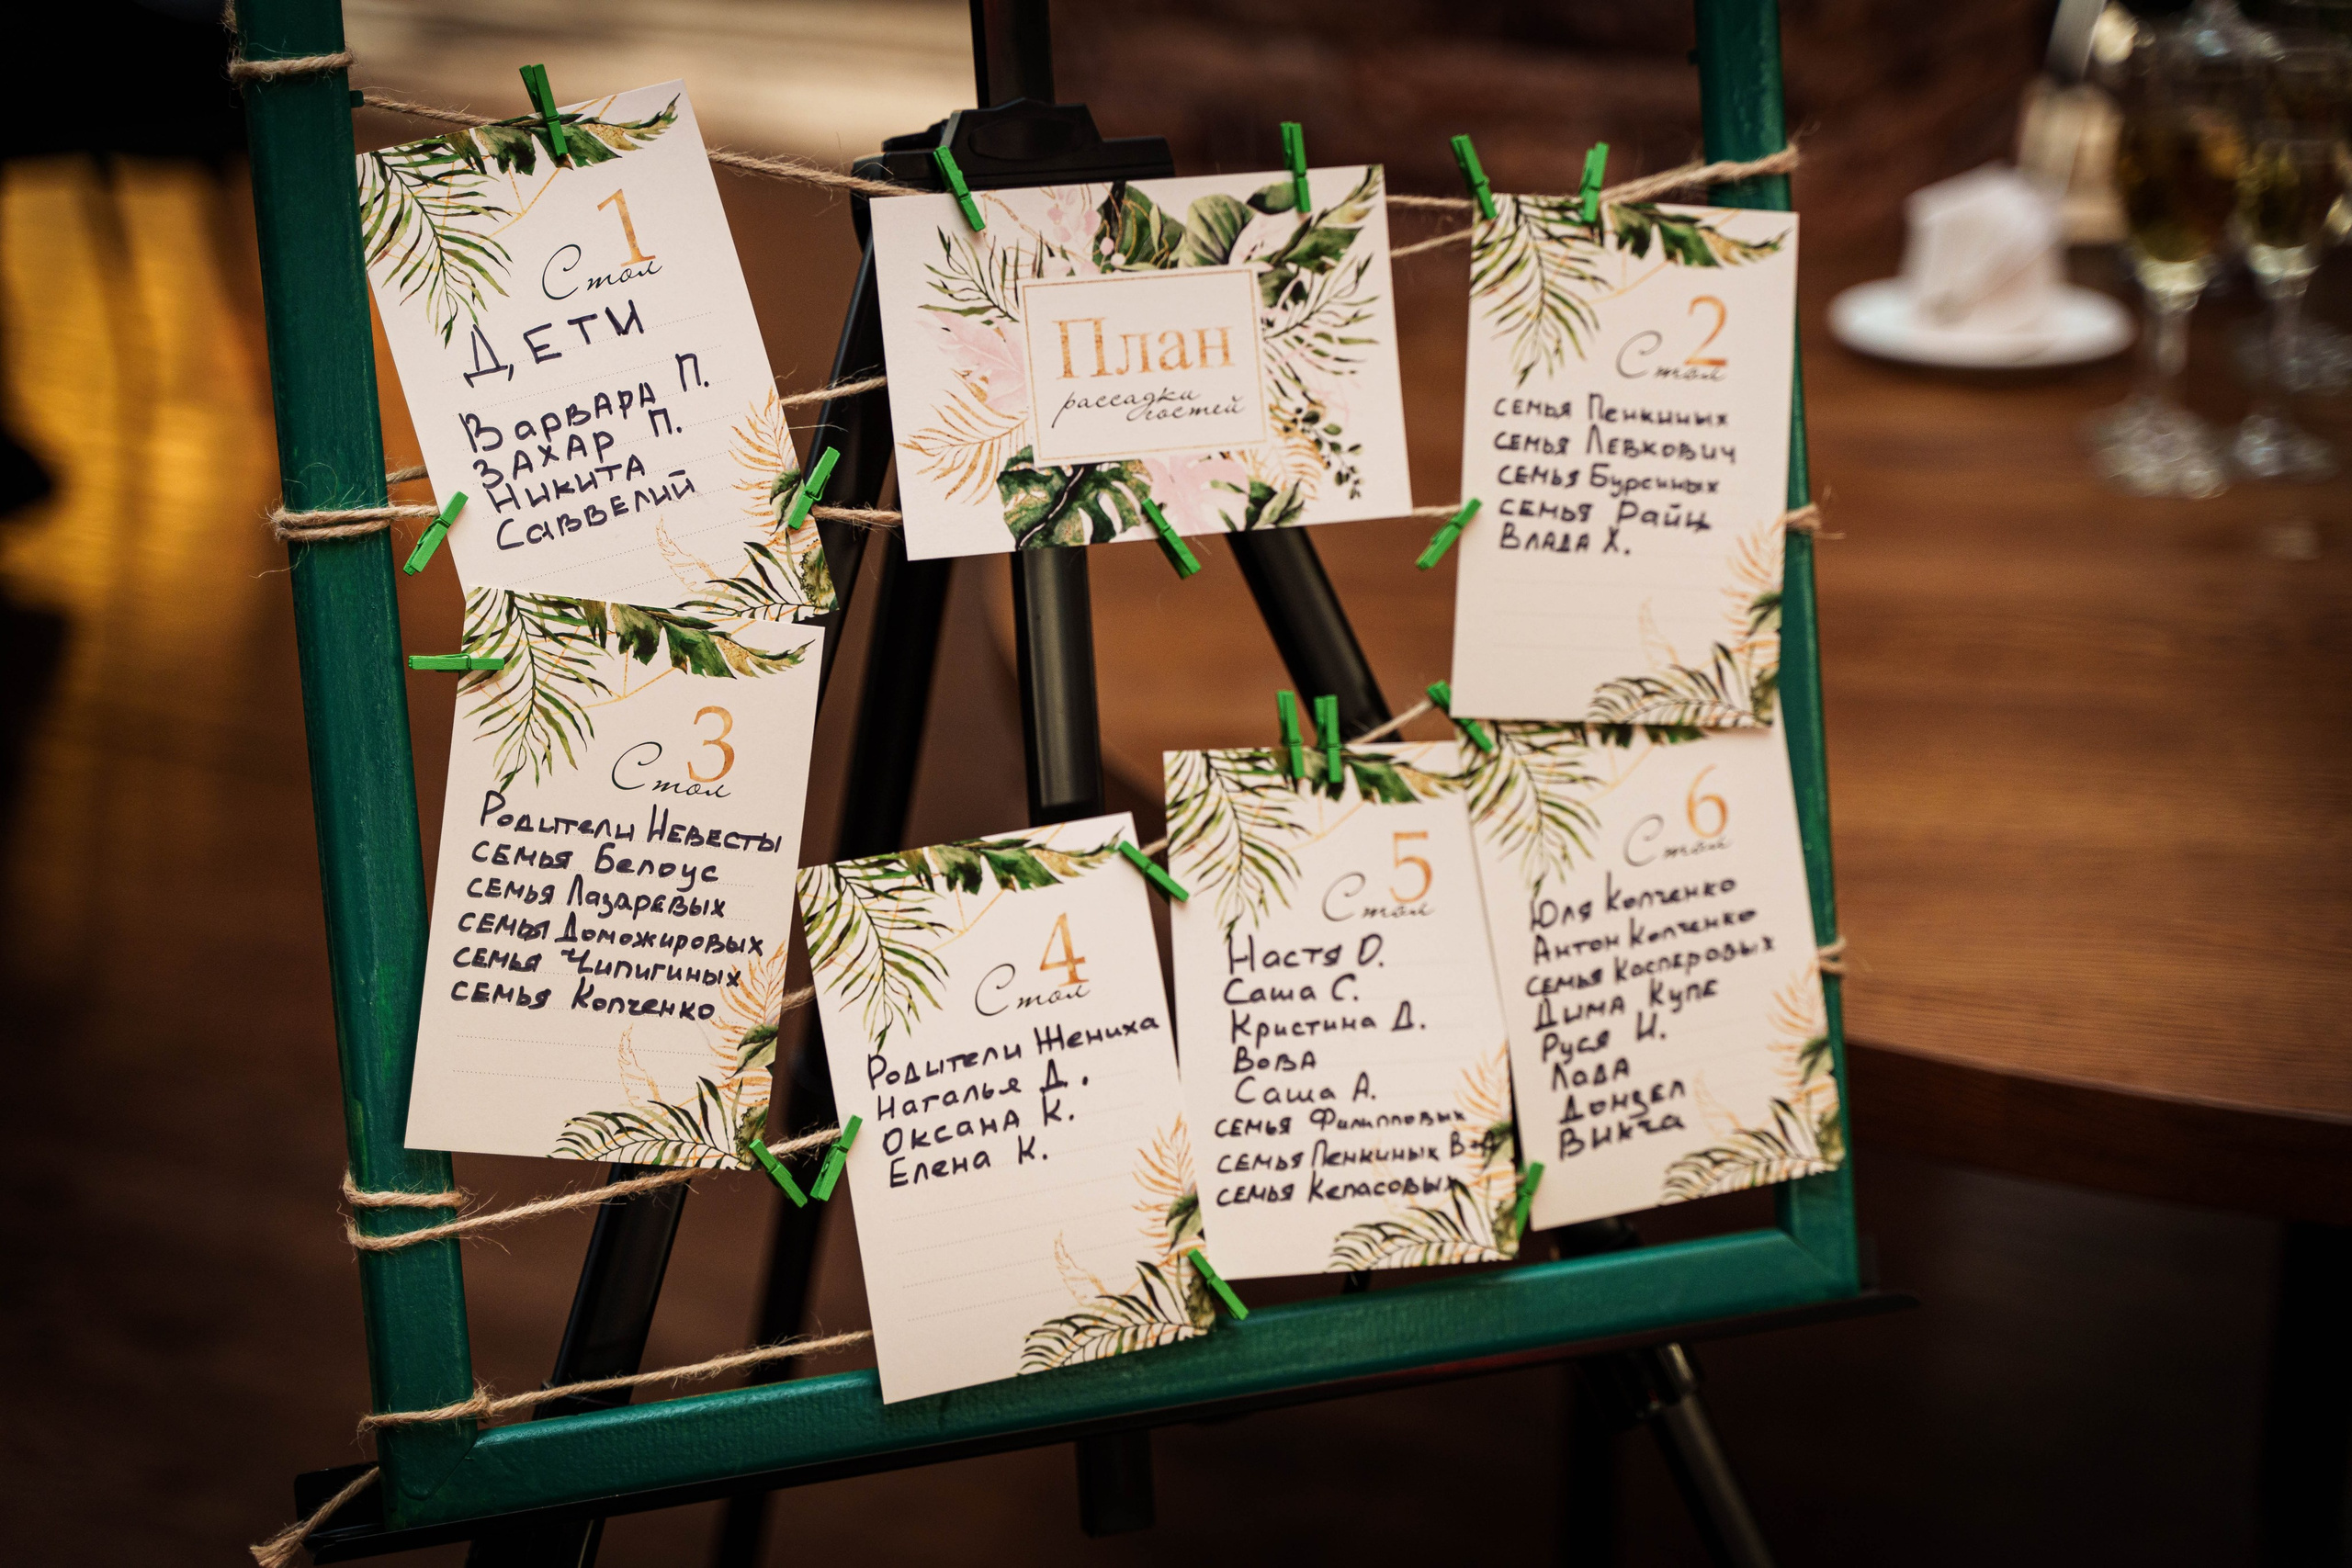 1
Стол
ДЕТИ
Варвара П.
Захар П.
Никита
Саввелий
План
рассадки
гостей
2
Стол
семья Пенкиных
семья Левкович
семья Бурсиных
семья Райц
Влада Х.
3
Стол
Родители Невесты
семья Белоус
семья Лазаревых
семья Доможировых
семья Чипигиных
семья Копченко
4
Стол
Родители Жениха
Наталья Д.
Оксана К.
Елена К.
5
Стол
Настя О.
Саша С.
Кристина Д.
Вова
Саша А.
семья Филипповых
семья Пенкиных В+А
семья Кепасовых
6
Стол
Юля Копченко
Антон Копченко
семья Касперовых
Дима Купе
Руся И.
Лада
Донзел
Викча